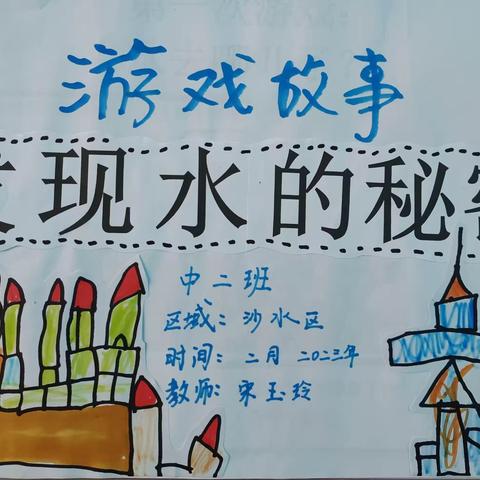 游戏故事
发现水的秘密
中二班
区域：沙水区
时间：二月 二〇二三年
教师：宋玉玲